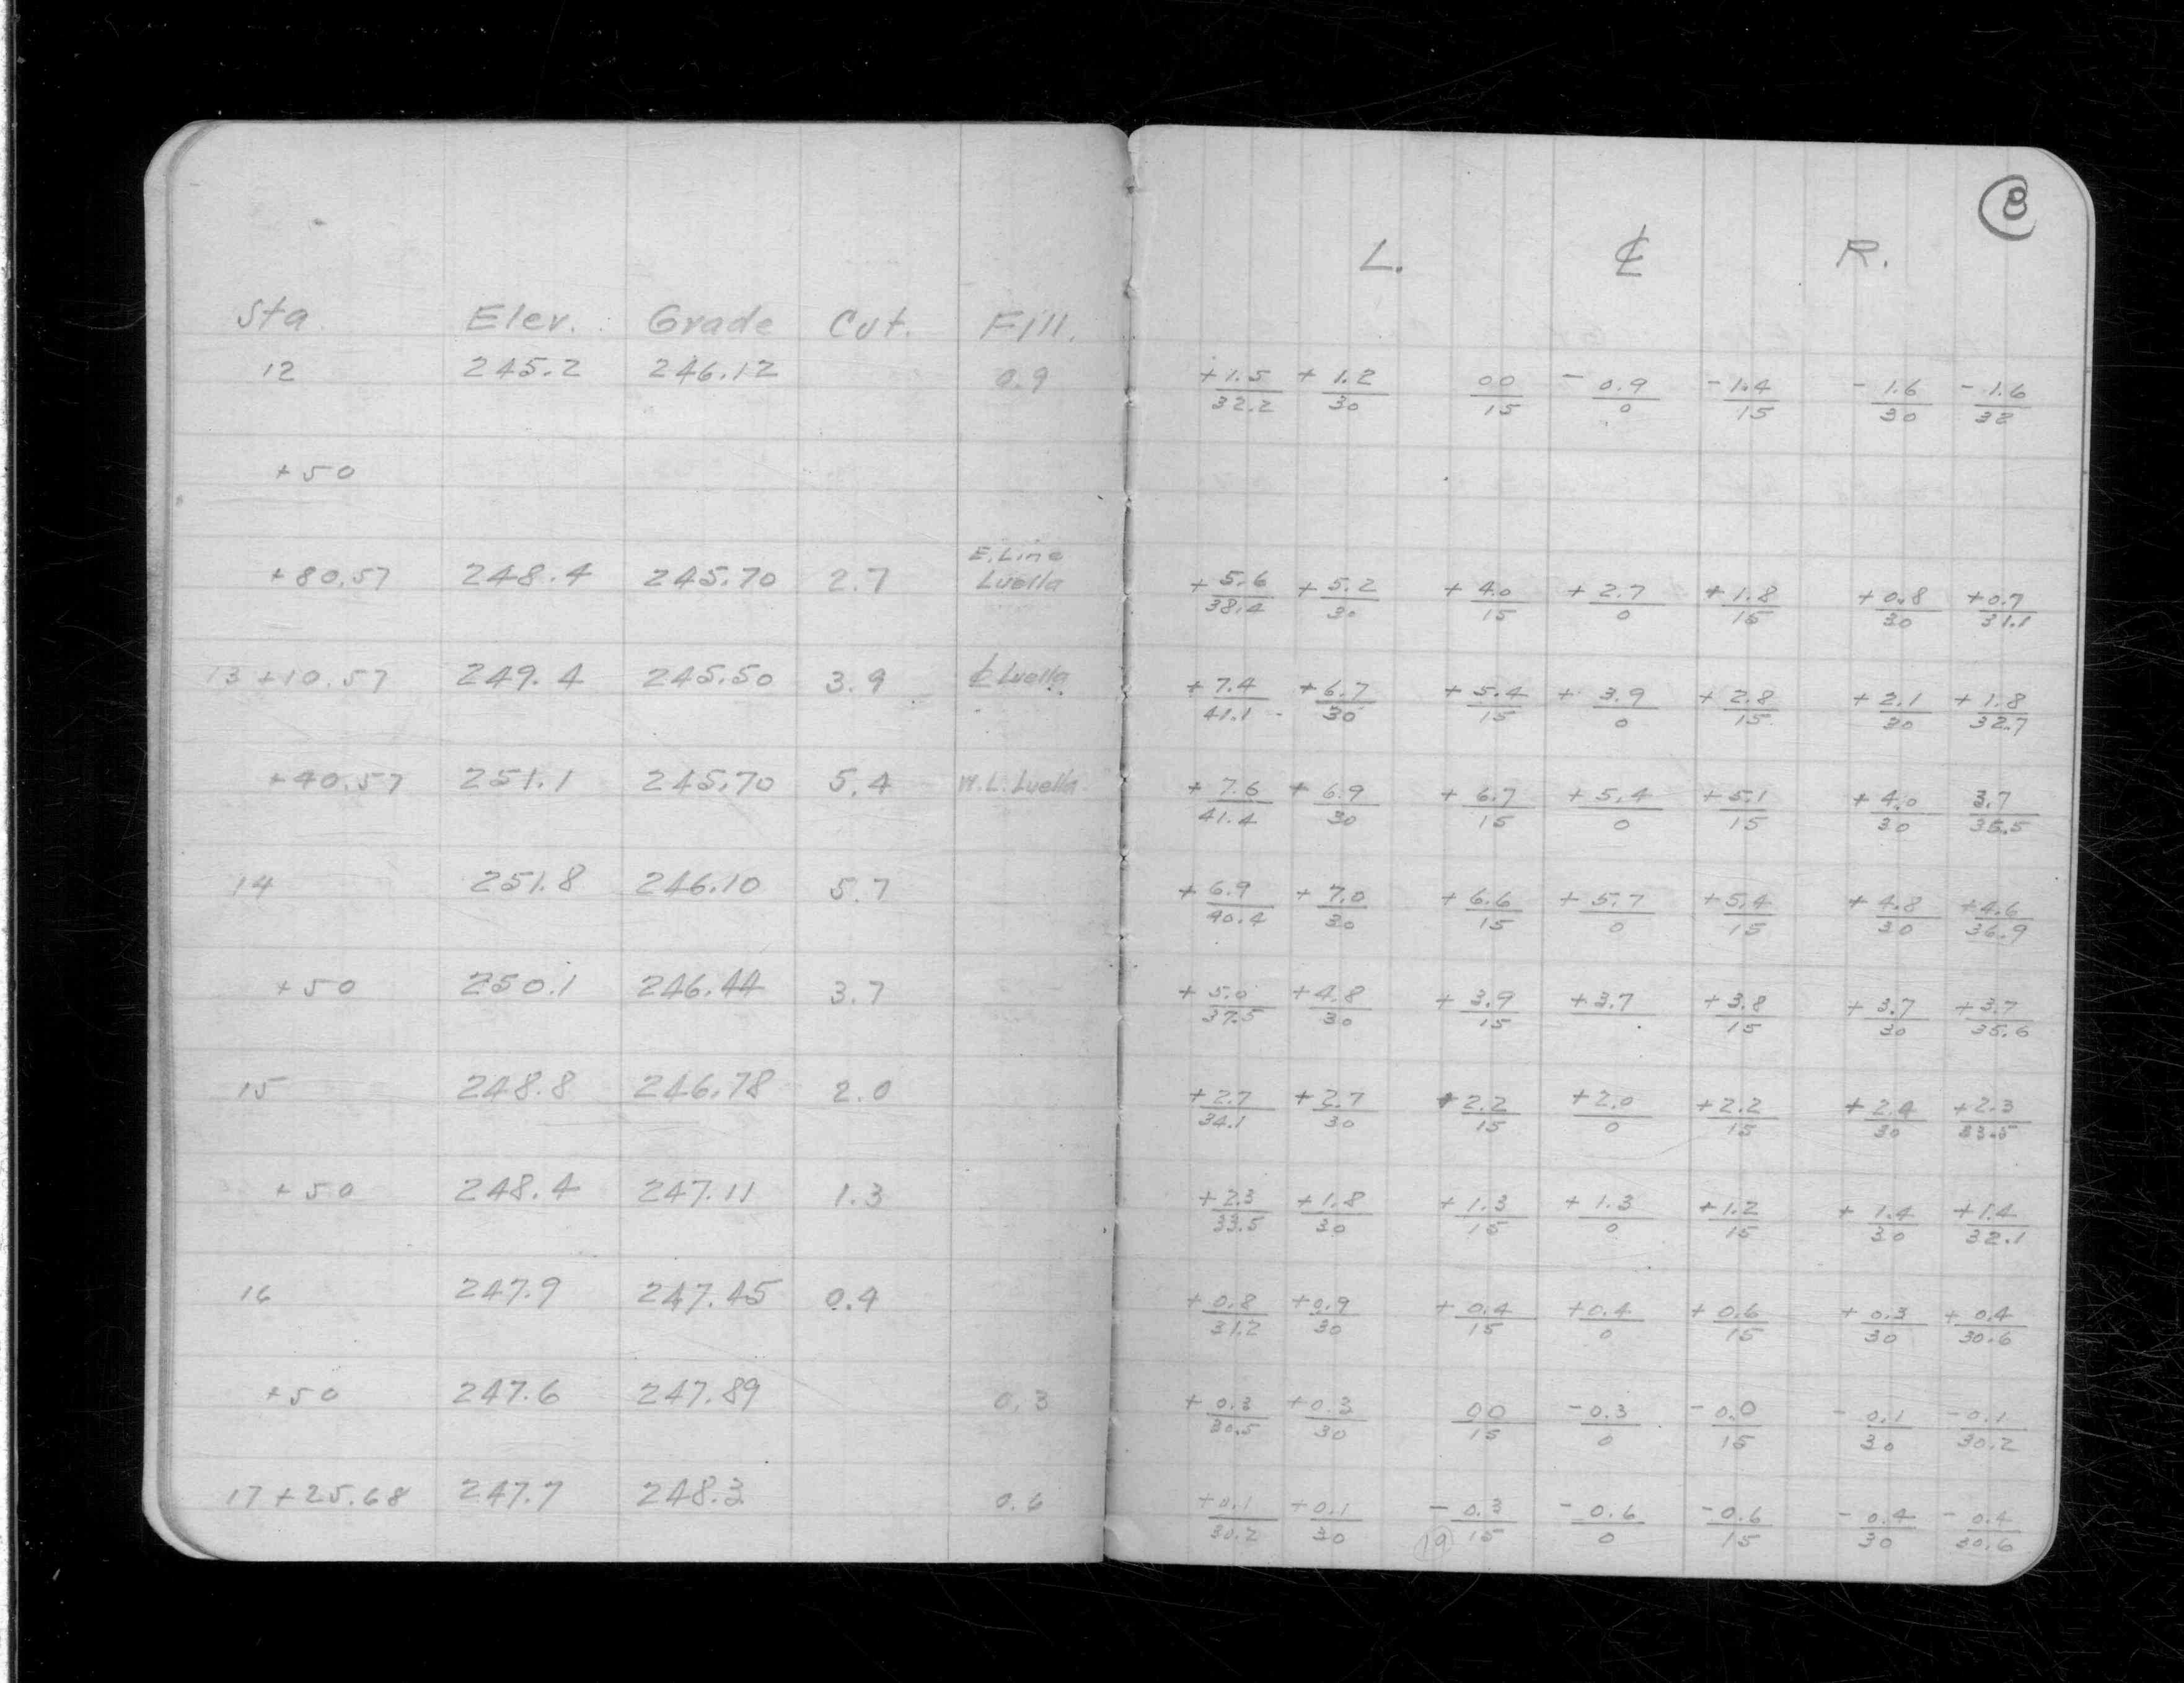 8
L. ℄ R.
Sta Elev. Grade Cut. Fill.
12 245.2 246.12 0.9 +1.5/32.2 +1.2/30 00/15 -0.9/0 -1.4/15 -1.6/30 -1.6/32
+50
E. Line
+80.57 248.4 245.70 2.7 Luella +5.6/38.4 +5.2/30 +4.0/15 +2.7/0 +1.8/15 +0.8/30 +0.7/31.1
13+10.57 249.4 245.50 3.9 ℄ Luella +7.4/41.1 +6.7/30 +5.4/15 +3.9/0 +2.8/15 +2.1/30 +1.8/32.7
+40.57 251.1 245.70 5.4 W.L. Luella +7.6/41.4 +6.9/30 +6.7/15 +5.4/0 +5.1/15 +4.0/30 3.7/35.5
14 251.8 246.10 5.7 +6.9/40.4 +7.0/30 +6.6/15 +5.7/0 +5.4/15 +4.8/30 +4.6/36.9
+50 250.1 246.44 3.7 +5.0/37.5 +4.8/30 +3.9/15 +3.7 +3.8/15 +3.7/30 +3.7/35.6
15 248.8 246.78 2.0 +2.7/34.1 +2.7/30 +2.2/15 +2.0/0 +2.2/15 +2.4/30 +2.3/33.5
+50 248.4 247.11 1.3 +2.3/33.5 +1.8/30 +1.3/15 +1.3/0 +1.2/15 +1.4/30 +1.4/32.1
16 247.9 247.45 0.4 +0.8/31.2 +0.9/30 +0.4/15 +0.4/0 +0.6/15 +0.3/30 +0.4/30.6
+50 247.6 247.89 0.3 +0.3/30.5 +0.3/30 00/15 -0.3/0 -0.0/15 -0.1/30 -0.1/30.2
17+25.68 247.7 248.3 0.6 +0.1/30.2 +0.1/30 -0.3/15 -0.6/0 -0.6/15 -0.4/30 -0.4/30.6
19